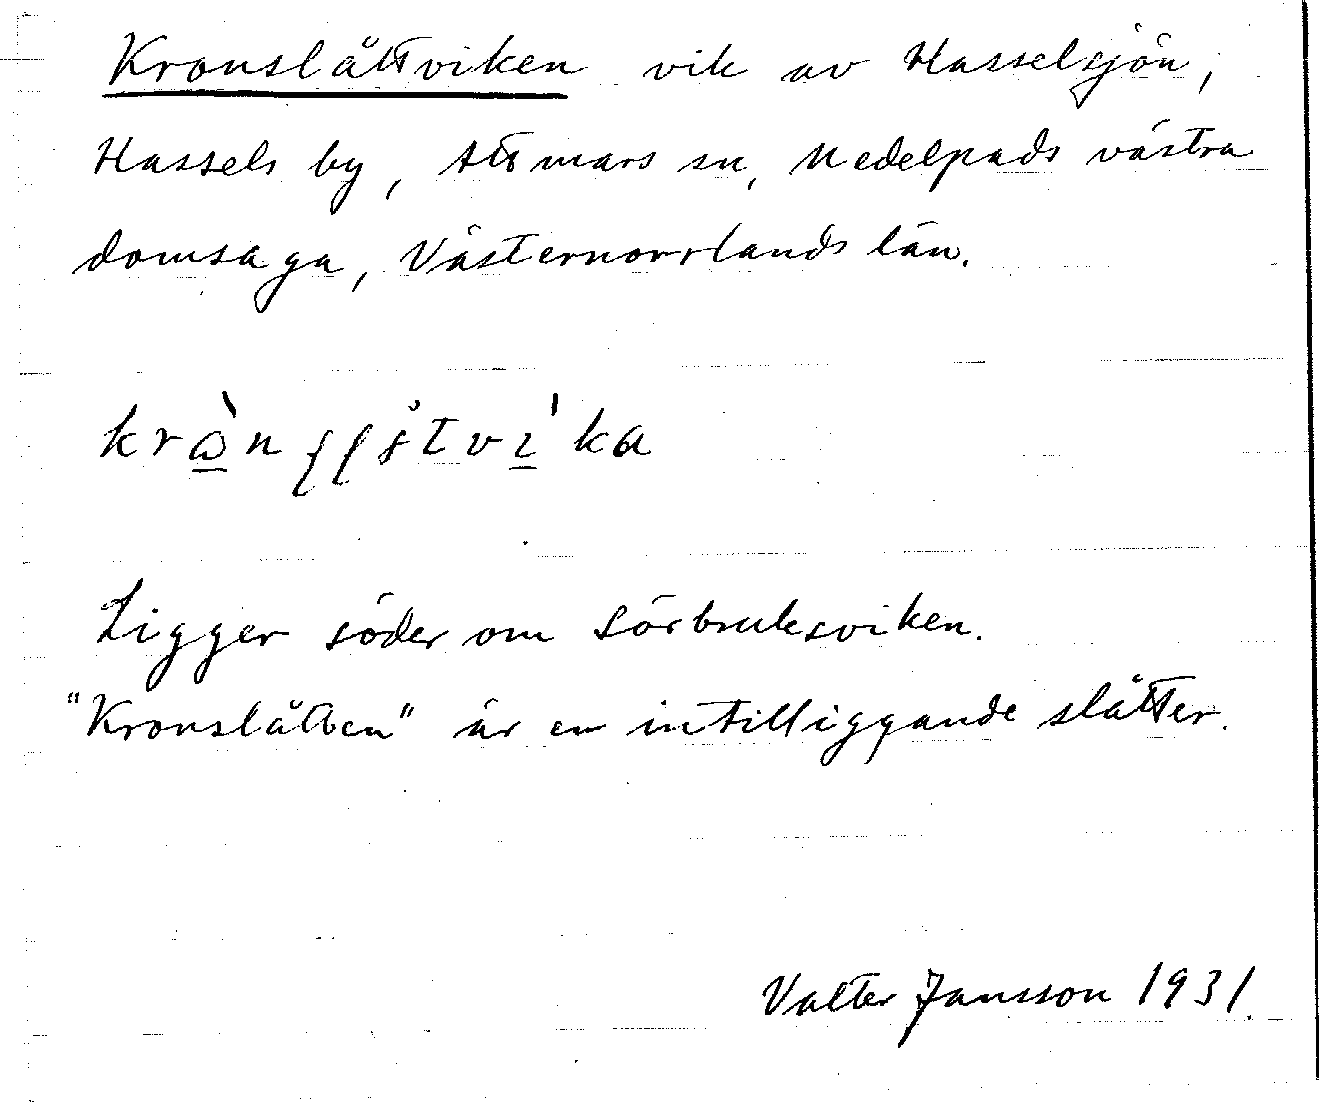 Kronslåttviken vik av Hasselsjön,
Hassels by, Attmars sn, Medelpads västra
domsaga, Västernorrlands län.
Ligger söder om Sörbruksviken.
"Kronslåtten" är en intilliggande slåtter.
Valter Jansson 1931.